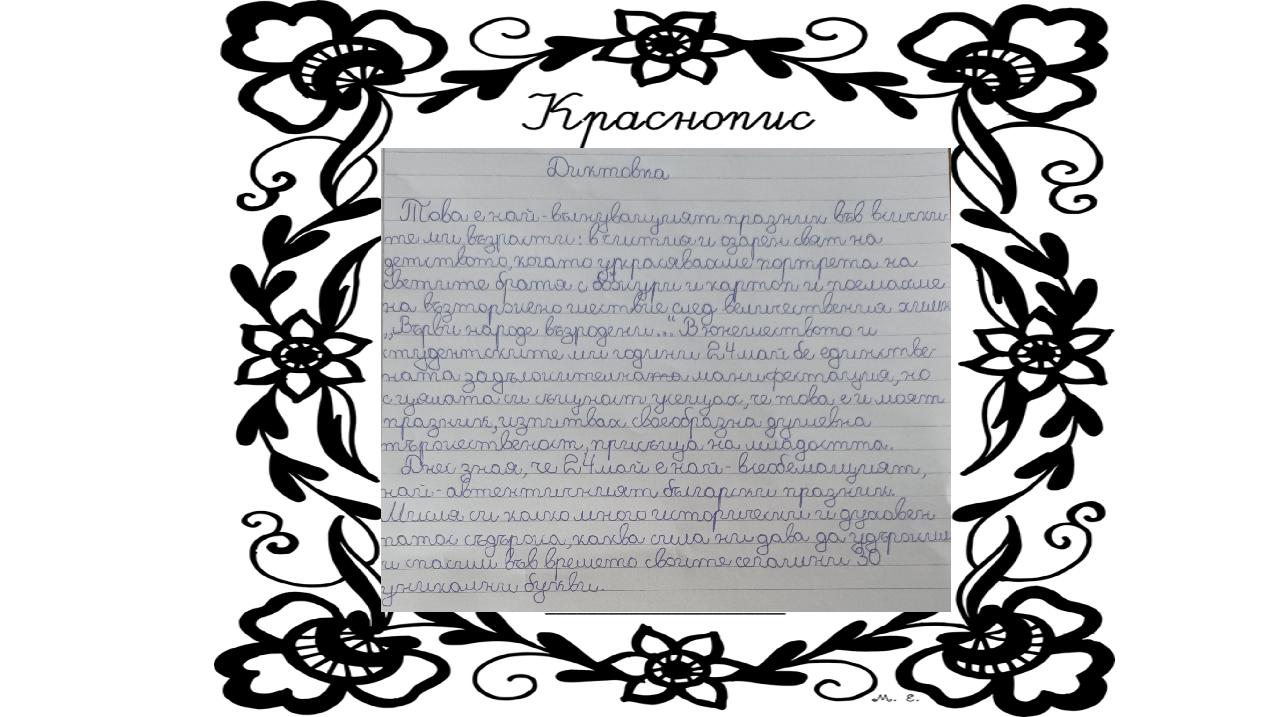 Краснопис
Диктовка
Това е най-вълнуващият празник във всички-
те ми възрасти: в чистия и озарен свят на
детството, когато украсявахме портрета на
светите братя с божури и картон и поемахме
на възторжено шествие след величествения химн
„Върви народе възродени..." В юношеството и
студентските ми години 24 май бе единстве-
ната задължителна манифестация, но
с цялата си същност усещах, че това е и моят
празник, изпитвах своеобразна душевна
тържественост, присъща на младостта.
Днес зная, че 24 май е най-всеобемащият,
най-автентичният български празник.
Мисля си колко много исторически и духовен
патос съдържа, каква сила ни дава да удържим
и спасим във времето своите сегашни 30
уникални букви.
м. е.